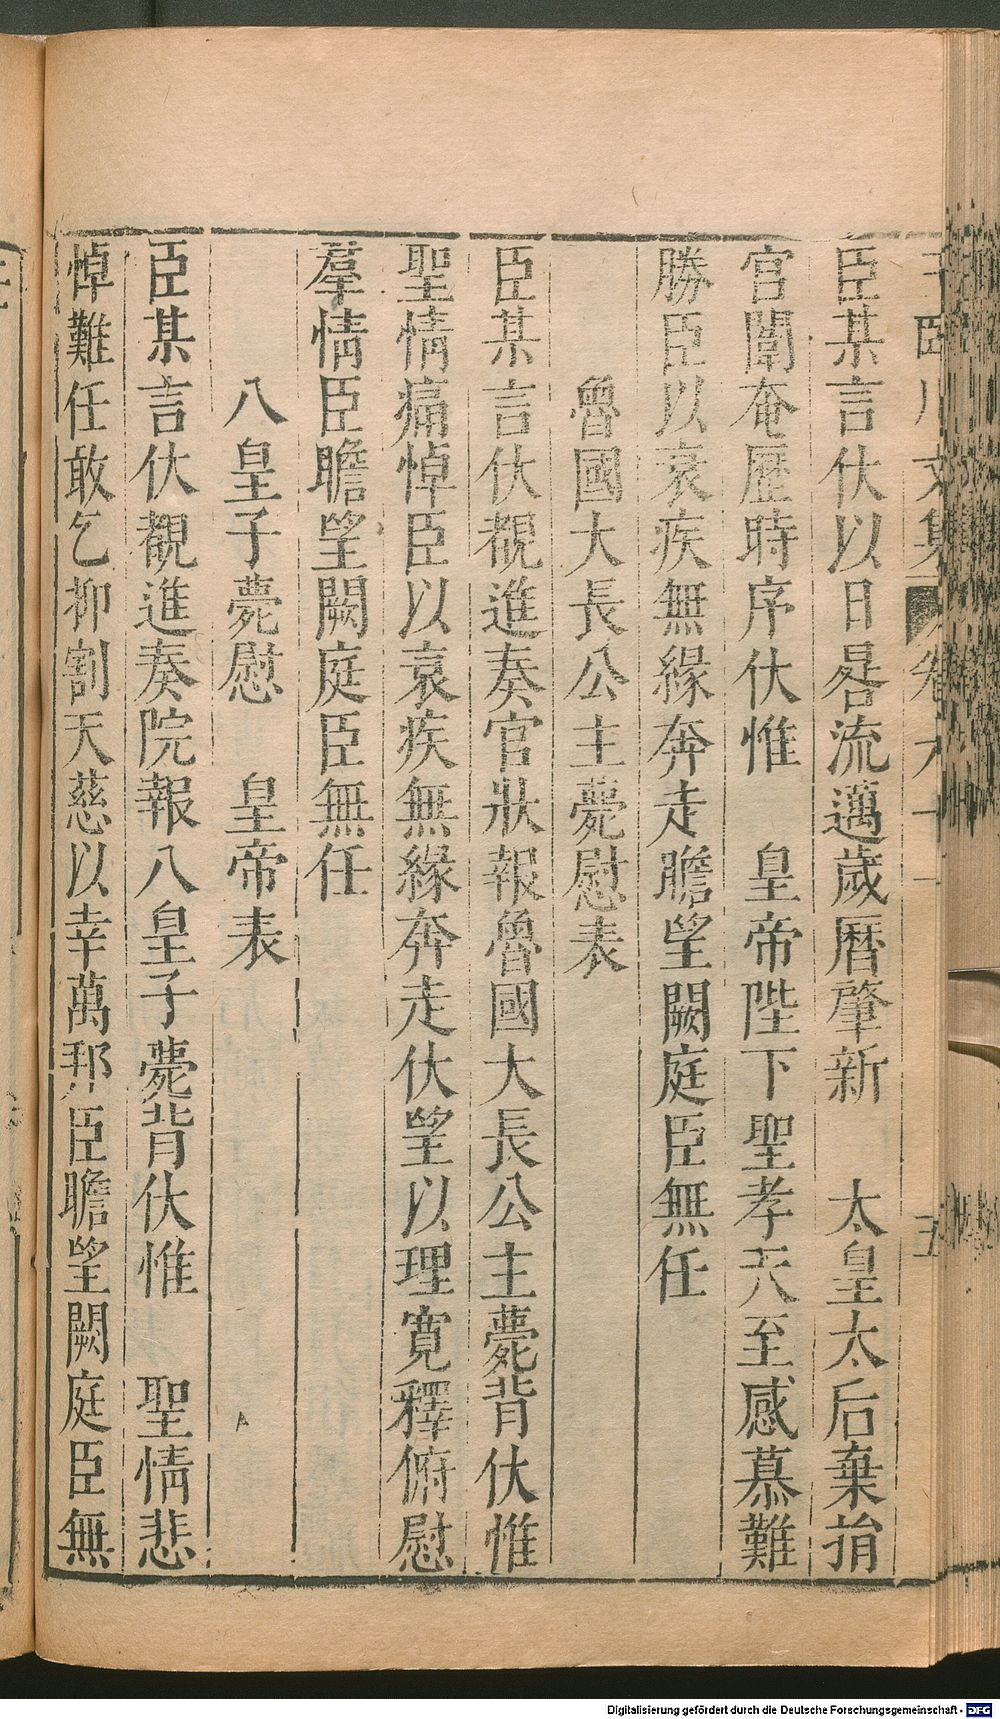 王臨川文集 卷六十一 五
臣某言伏以日晷流邁歲曆肇新　太皇太后棄捐
宮闈奄歷時序伏惟　皇帝陛下聖孝天至感慕難
勝臣以衰疾無緣奔走瞻望闕庭臣無任
魯國大長公主薨慰表
臣某言伏覩進奏官狀報魯國大長公主薨背伏惟
聖情痛悼臣以衰疾無緣奔走伏望以理寬釋俯慰
羣情臣瞻望闕庭臣無任
八皇子薨慰　皇帝表
臣某言伏覩進奏院報八皇子薨背伏惟　聖情悲
悼難任敢乞抑割天慈以幸萬邦臣瞻望闕庭臣無
Digitalisierung gefördert durch die Deutsche Forschungsgemeinschaft - DFG